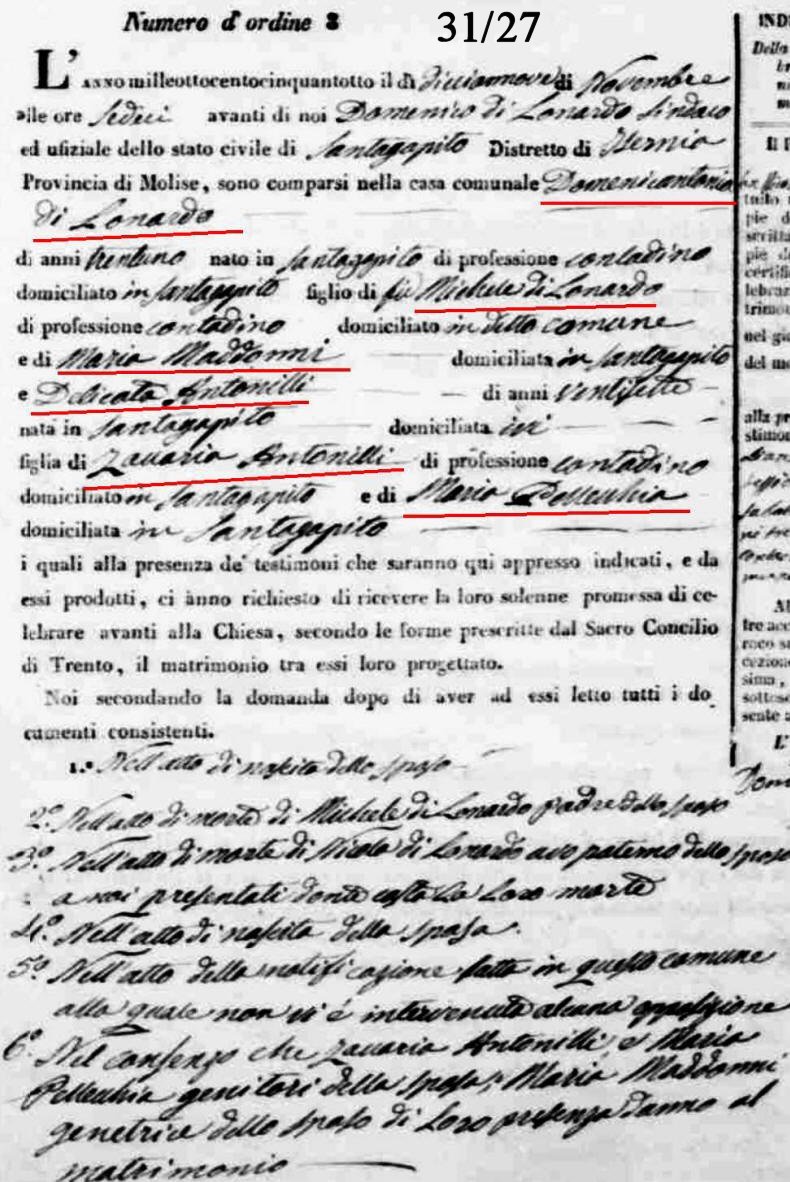 Numero d'ordine 8
31/27
L'ANNO milleottocentocinquantotto il dì diciannove di Novembre
alle ore sedici avanti di noi Domenico di Lonardo Sindaco
ed ufiziale dello stato civile di Santagapito Distretto di Isernia
Provincia di Molise, sono comparsi nella casa comunale Domenicantonio
di Lonardo
di anni trentuno nato in Santagapito di professione contadino
domiciliato in Santagapito figlio di fu Michele di Lonardo
di professione contadino domiciliato in detto comune
e di Maria Maddonni domiciliata in Santagapito
e Delicata Antonilli di anni ventisette
nata in Santagapito domiciliata ivi
figlia di Zaccaria Antonilli di professione contadino
domiciliato in Santagapito e di Maria Pellecchia
domiciliata in Santagapito
i quali alla presenza de' testimoni che saranno qui appresso indicati, e da
essi prodotti, ci ànno richiesto di ricevere la loro solenne promessa di ce-
lebrare avanti alla Chiesa, secondo le forme prescritte dal Sacro Concilio
di Trento, il matrimonio tra essi loro progettato.
Noi secondando la domanda dopo di aver ad essi letto tutti i do
cumenti consistenti.
1.° Nell'atto di nascita dello sposo
2.° Nell'atto di morte di Michele di Lonardo padre dello sposo
3.° Nell'atto di morte di Nicola di Lonardo avo paterno dello sposo
a noi presentati donde costa la loro morte
4.° Nell'atto di nascita della sposa.
5.° Nell'atto della notificazione fatta in questo comune
alla quale non vi è intervenuta alcuna opposizione
6.° Nel consenso che Zaccaria Antonilli, e Maria
Pellecchia genitori della sposa, Maria Maddonni
genetrice dello sposo di loro presenza danno al
matrimonio